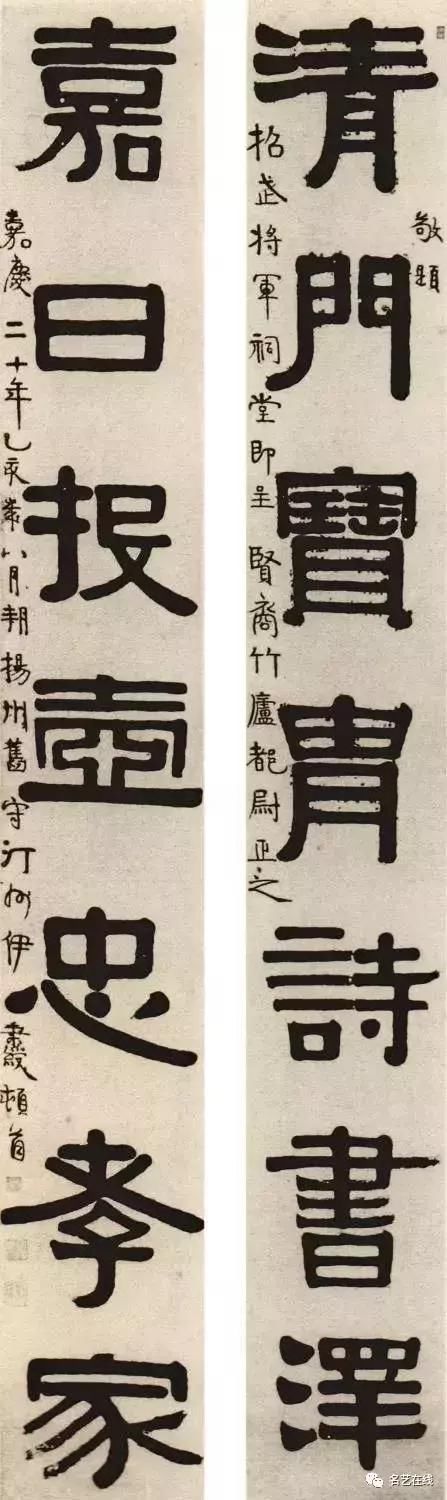 清門寶胄詩書澤
敬題
招武將軍祠堂即呈賢裔竹廬都尉正之
嘉日投壺忠孝家
嘉慶二十年乙亥歲八月朔揚州舊守汀州伊秉綬頓首
名艺在线